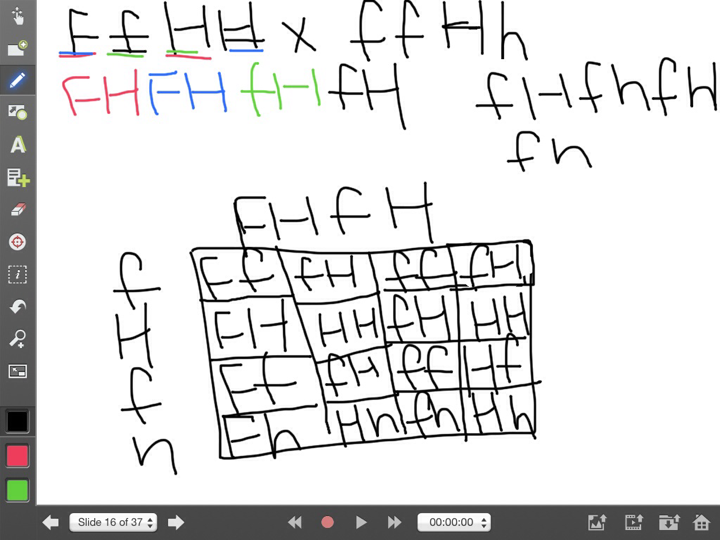 FfHH x ffHh
FH FH fH fH fH fh fH
fh
FH fH
f Ff fH ff fH
H FH HH fH HH
f Ff fH ff Hf
h Fh Hh fh Hh
A
T
i
Slide 16 of 37
00:00:00